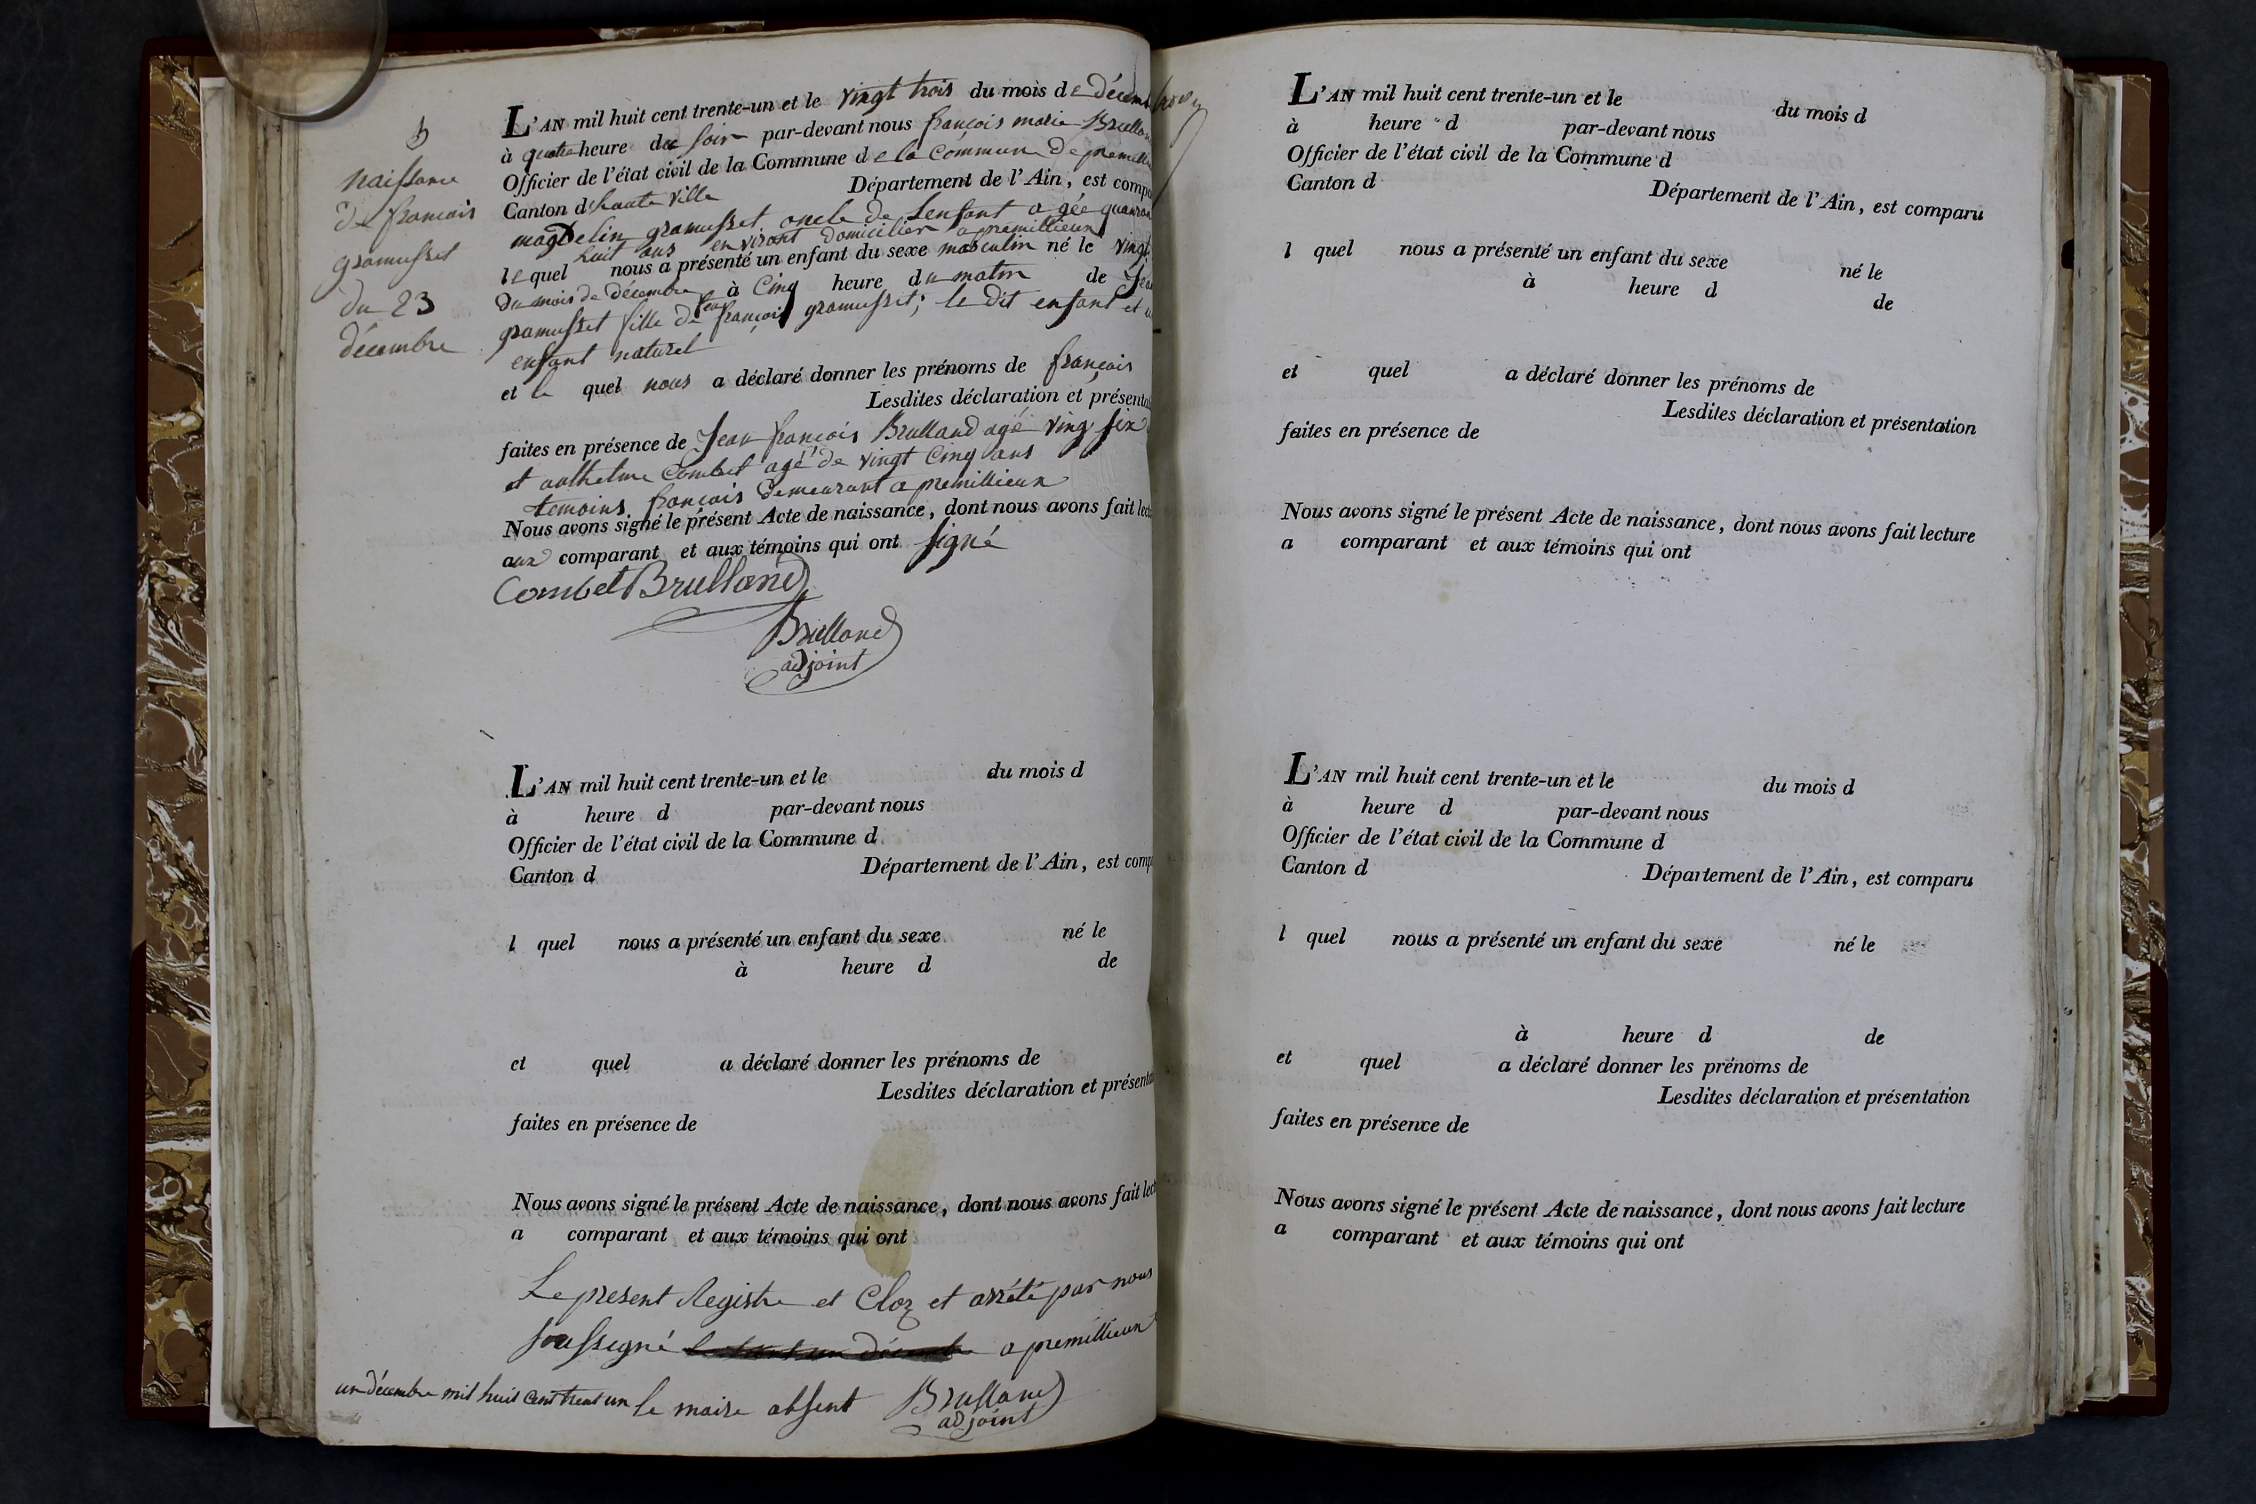 L'AN mil huit cent trente-un et le vingt trois du mois de décem
à quatre heure du soir par-devant nous françois marie Brullan
Officier de l'état civil de la Commune de la commune de premilli
Canton d'haute ville Département de l'Ain, est compa
magdelin gramusset oncle de Lenfant agée quaran
huit ans environt domicilier a premillieux
le quel nous a présenté un enfant du sexe masculin né le vingt
du mois de décembre à Cinq heure du matin de
gramusset fille de jean françois gramusset; le dit enfant et
enfant naturel
et le quel nous a déclaré donner les prénoms de françois
Lesdites déclaration et présenta
faites en présence de Jean françois Brulland agé ving six
et anthelme Combet agé de vingt Cinq ans
temoins françois demeurant a premillieux
Nous avons signé le présent Acte de naissance, dont nous avons fait lect
aux comparant et aux témoins qui ont signé
Combet Brulland
Brulland
adjoint
b
naissance
de francois
gramusset
du 23
décembre
L'AN mil huit cent trente-un et le du mois d
à heure d par-devant nous
Officier de l'état civil de la Commune d
Canton d Département de l'Ain, est comp
l quel nous a présenté un enfant du sexe né le
à heure d de
et quel a déclaré donner les prénoms de
Lesdites déclaration et présenta
faites en présence de
Nous avons signé le présent Acte de naissance, dont nous avons fait lect
a comparant et aux témoins qui ont
Le present Registre et Cloz et arrété par nous
soussigné a premillieux
un décembre mil huit cent trent un le maire absent Brulland
adjoint
L'AN mil huit cent trente-un et le du mois d
à heure d par-devant nous
Officier de l'état civil de la Commune d
Canton d Département de l'Ain, est comparu
l quel nous a présenté un enfant du sexe né le
à heure d de
et quel a déclaré donner les prénoms de
Lesdites déclaration et présentation
faites en présence de
Nous avons signé le présent Acte de naissance, dont nous avons fait lecture
a comparant et aux témoins qui ont
L'AN mil huit cent trente-un et le du mois d
à heure d par-devant nous
Officier de l'état civil de la Commune d
Canton d Département de l'Ain, est comparu
l quel nous a présenté un enfant du sexe né le
à heure d de
et quel a déclaré donner les prénoms de
Lesdites déclaration et présentation
faites en présence de
Nous avons signé le présent Acte de naissance, dont nous avons fait lecture
a comparant et aux témoins qui ont